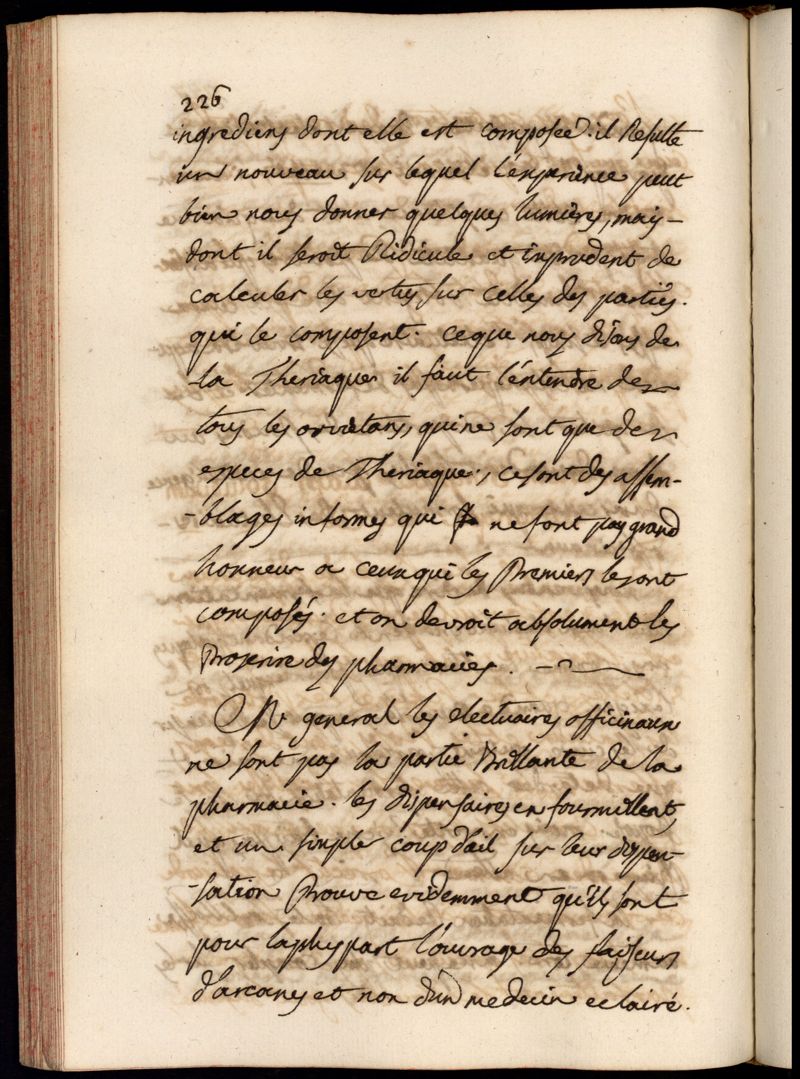 226
ingrediens dont elle est composée. il Resulte
un nouveau sur lequel l'experience peut
bien nous donner quelques lumieres, mais
dont il seroit Ridicule et imprudent de
calculer les vertus sur celles des parties.
qui le composent. ce que nous disons de
la Theriaque il faut l'entendre de
tous les orvietans, qui ne sont que des
especes de Theriaque, ce sont des assem-
-blages informes qui ne font pas grand
honneur a ceux qui les Premiers les ont
composés. et on devroit absolument les
Proscrire des pharmacies.
En general les electuaires officinaux
ne sont pas la partie Brillante de la
pharmacie. les dispensaires en fourmillent,
et un simple coup d'œil sur leur dispen-
-sation Prouve evidemment qu'ils sont
pour la pluspart l'ouvrage des faiseurs
d'arcanes et non d'un medecin eclairé.